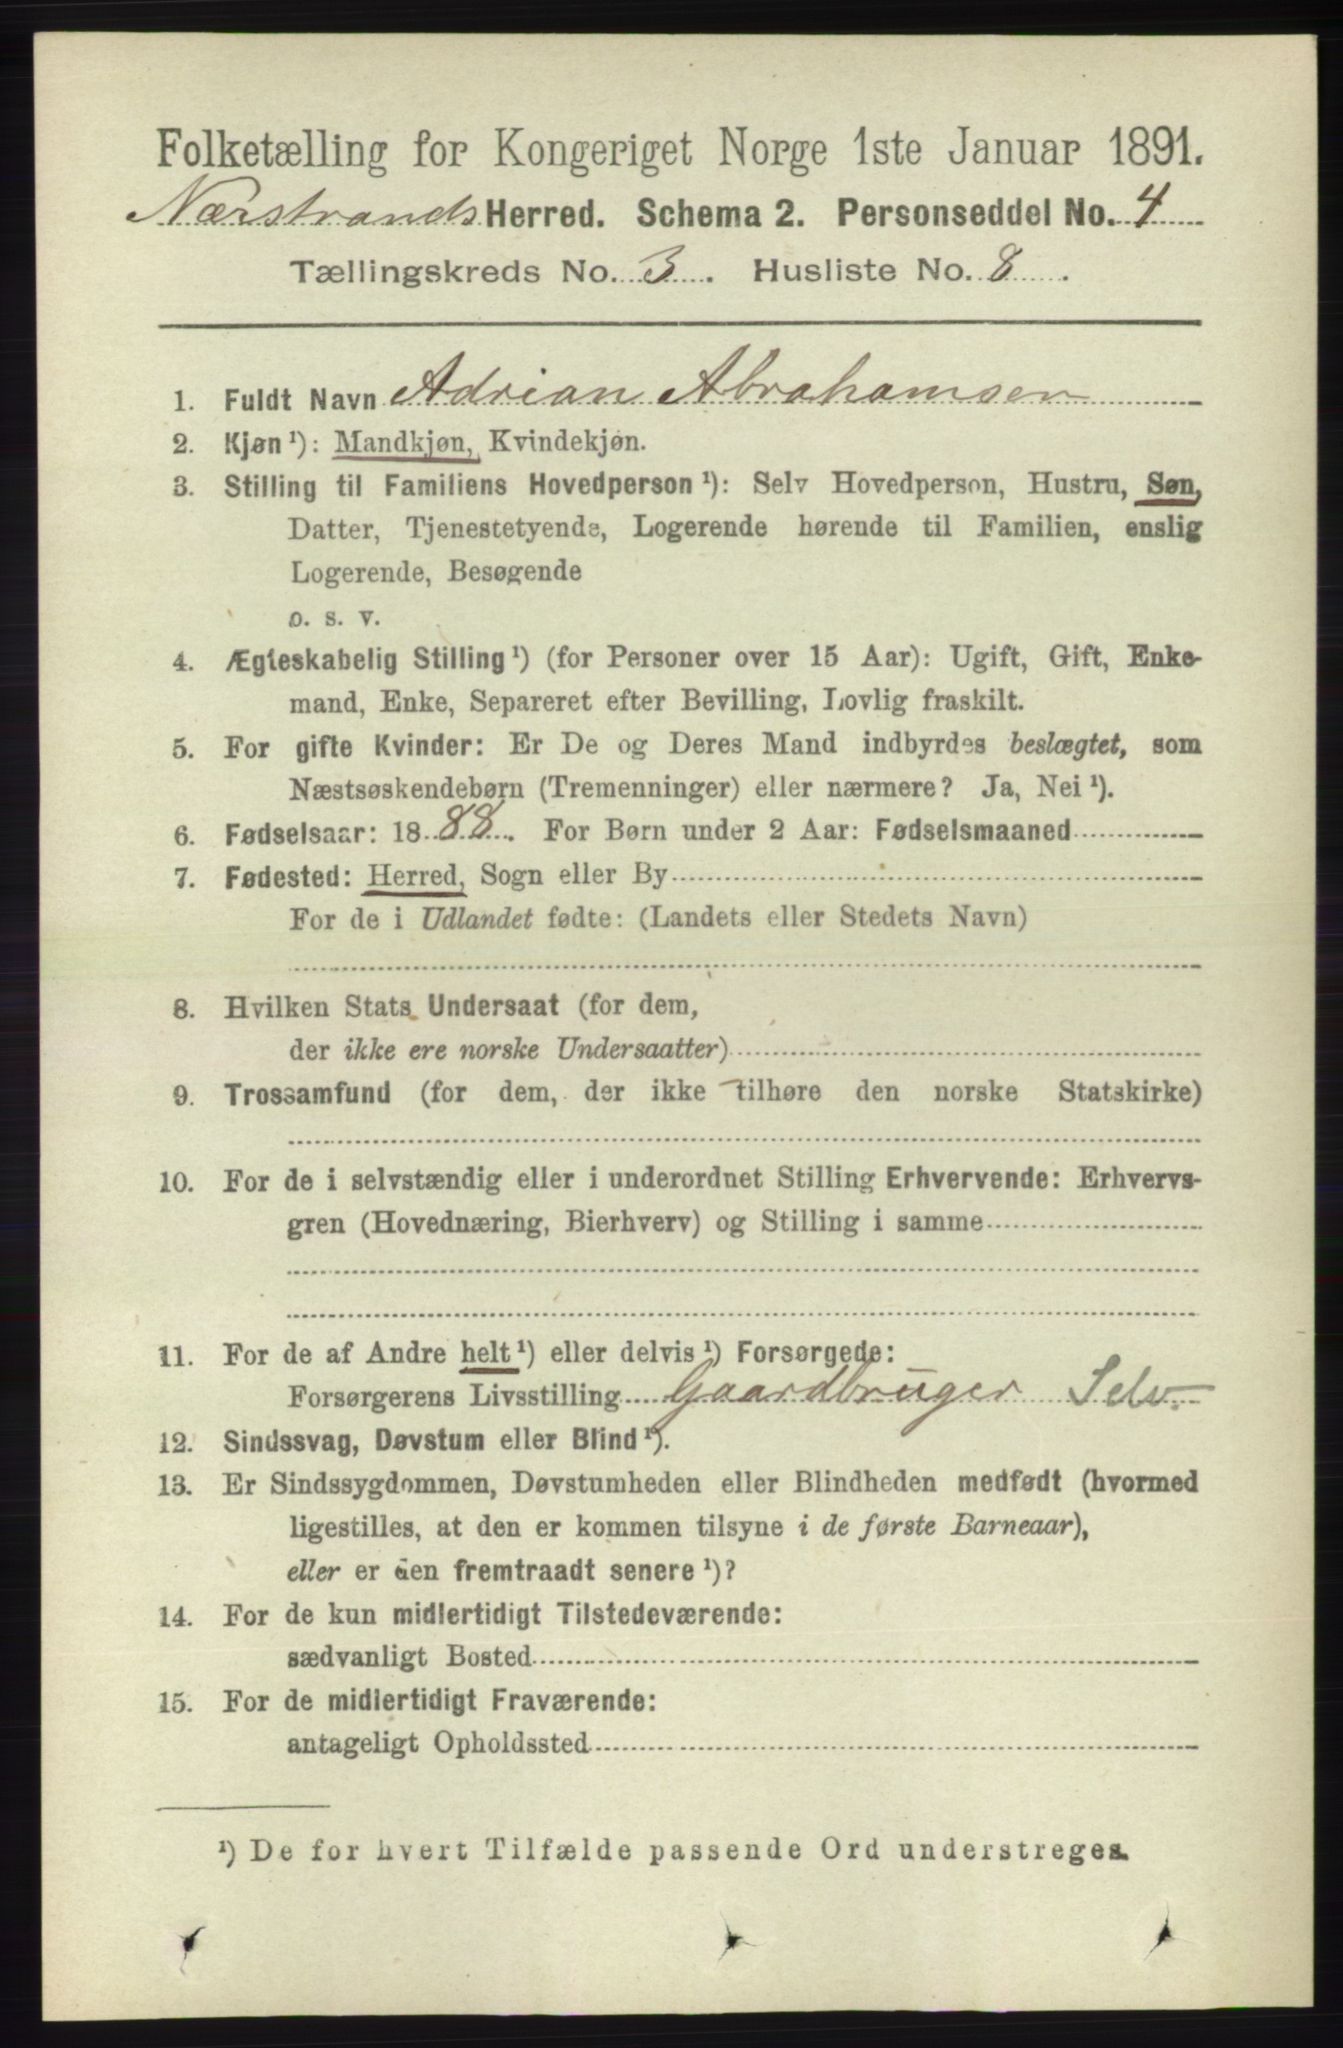 Folketælling for Kongeriget Norge 1ste Januar 1891.
Nærstrands Herred. Schema 2. Personseddel No. 4
Tællingskreds No. 3. Husliste No. 8.
1. Fuldt Navn Adrian Abrahamsen
2. Kjøn¹): Mandkjøn, Kvindekjøn.
3. Stilling til Familiens Hovedperson¹): Selv Hovedperson, Hustru, Søn,
Datter, Tjenestetyende, Logerende hørende til Familien, enslig
Logerende, Besøgende
o. s. v.
4. Ægteskabelig Stilling¹) (for Personer over 15 Aar): Ugift, Gift, Enke-
mand, Enke, Separeret efter Bevilling, Lovlig fraskilt.
5. For gifte Kvinder: Er De og Deres Mand indbyrdes beslægtet, som
Næstsøskendebørn (Tremenninger) eller nærmere? Ja, Nei¹).
6. Fødselsaar: 1888. For Børn under 2 Aar: Fødselsmaaned
7. Fødested: Herred, Sogn eller By
For de i Udlandet fødte: (Landets eller Stedets Navn)
8. Hvilken Stats Undersaat (for dem,
der ikke ere norske Undersaatter)
9. Trossamfund (for dem, der ikke tilhøre den norske Statskirke)
10. For de i selvstændig eller i underordnet Stilling Erhvervende: Erhvervs-
gren (Hovednæring, Bierhverv) og Stilling i samme
11. For de af Andre helt¹) eller delvis¹) Forsørgede:
Forsørgerens Livsstilling Gaardbruger Selv.
12. Sindssvag, Døvstum eller Blind¹).
13. Er Sindssygdommen, Døvstumheden eller Blindheden medfødt (hvormed
ligestilles, at den er kommen tilsyne i de første Barneaar),
eller er den fremtraadt senere¹)?
14. For de kun midlertidigt Tilstedeværende:
sædvanligt Bosted
15. For de midlertidigt Fraværende:
antageligt Opholdssted
¹) De for hvert Tilfælde passende Ord understreges.